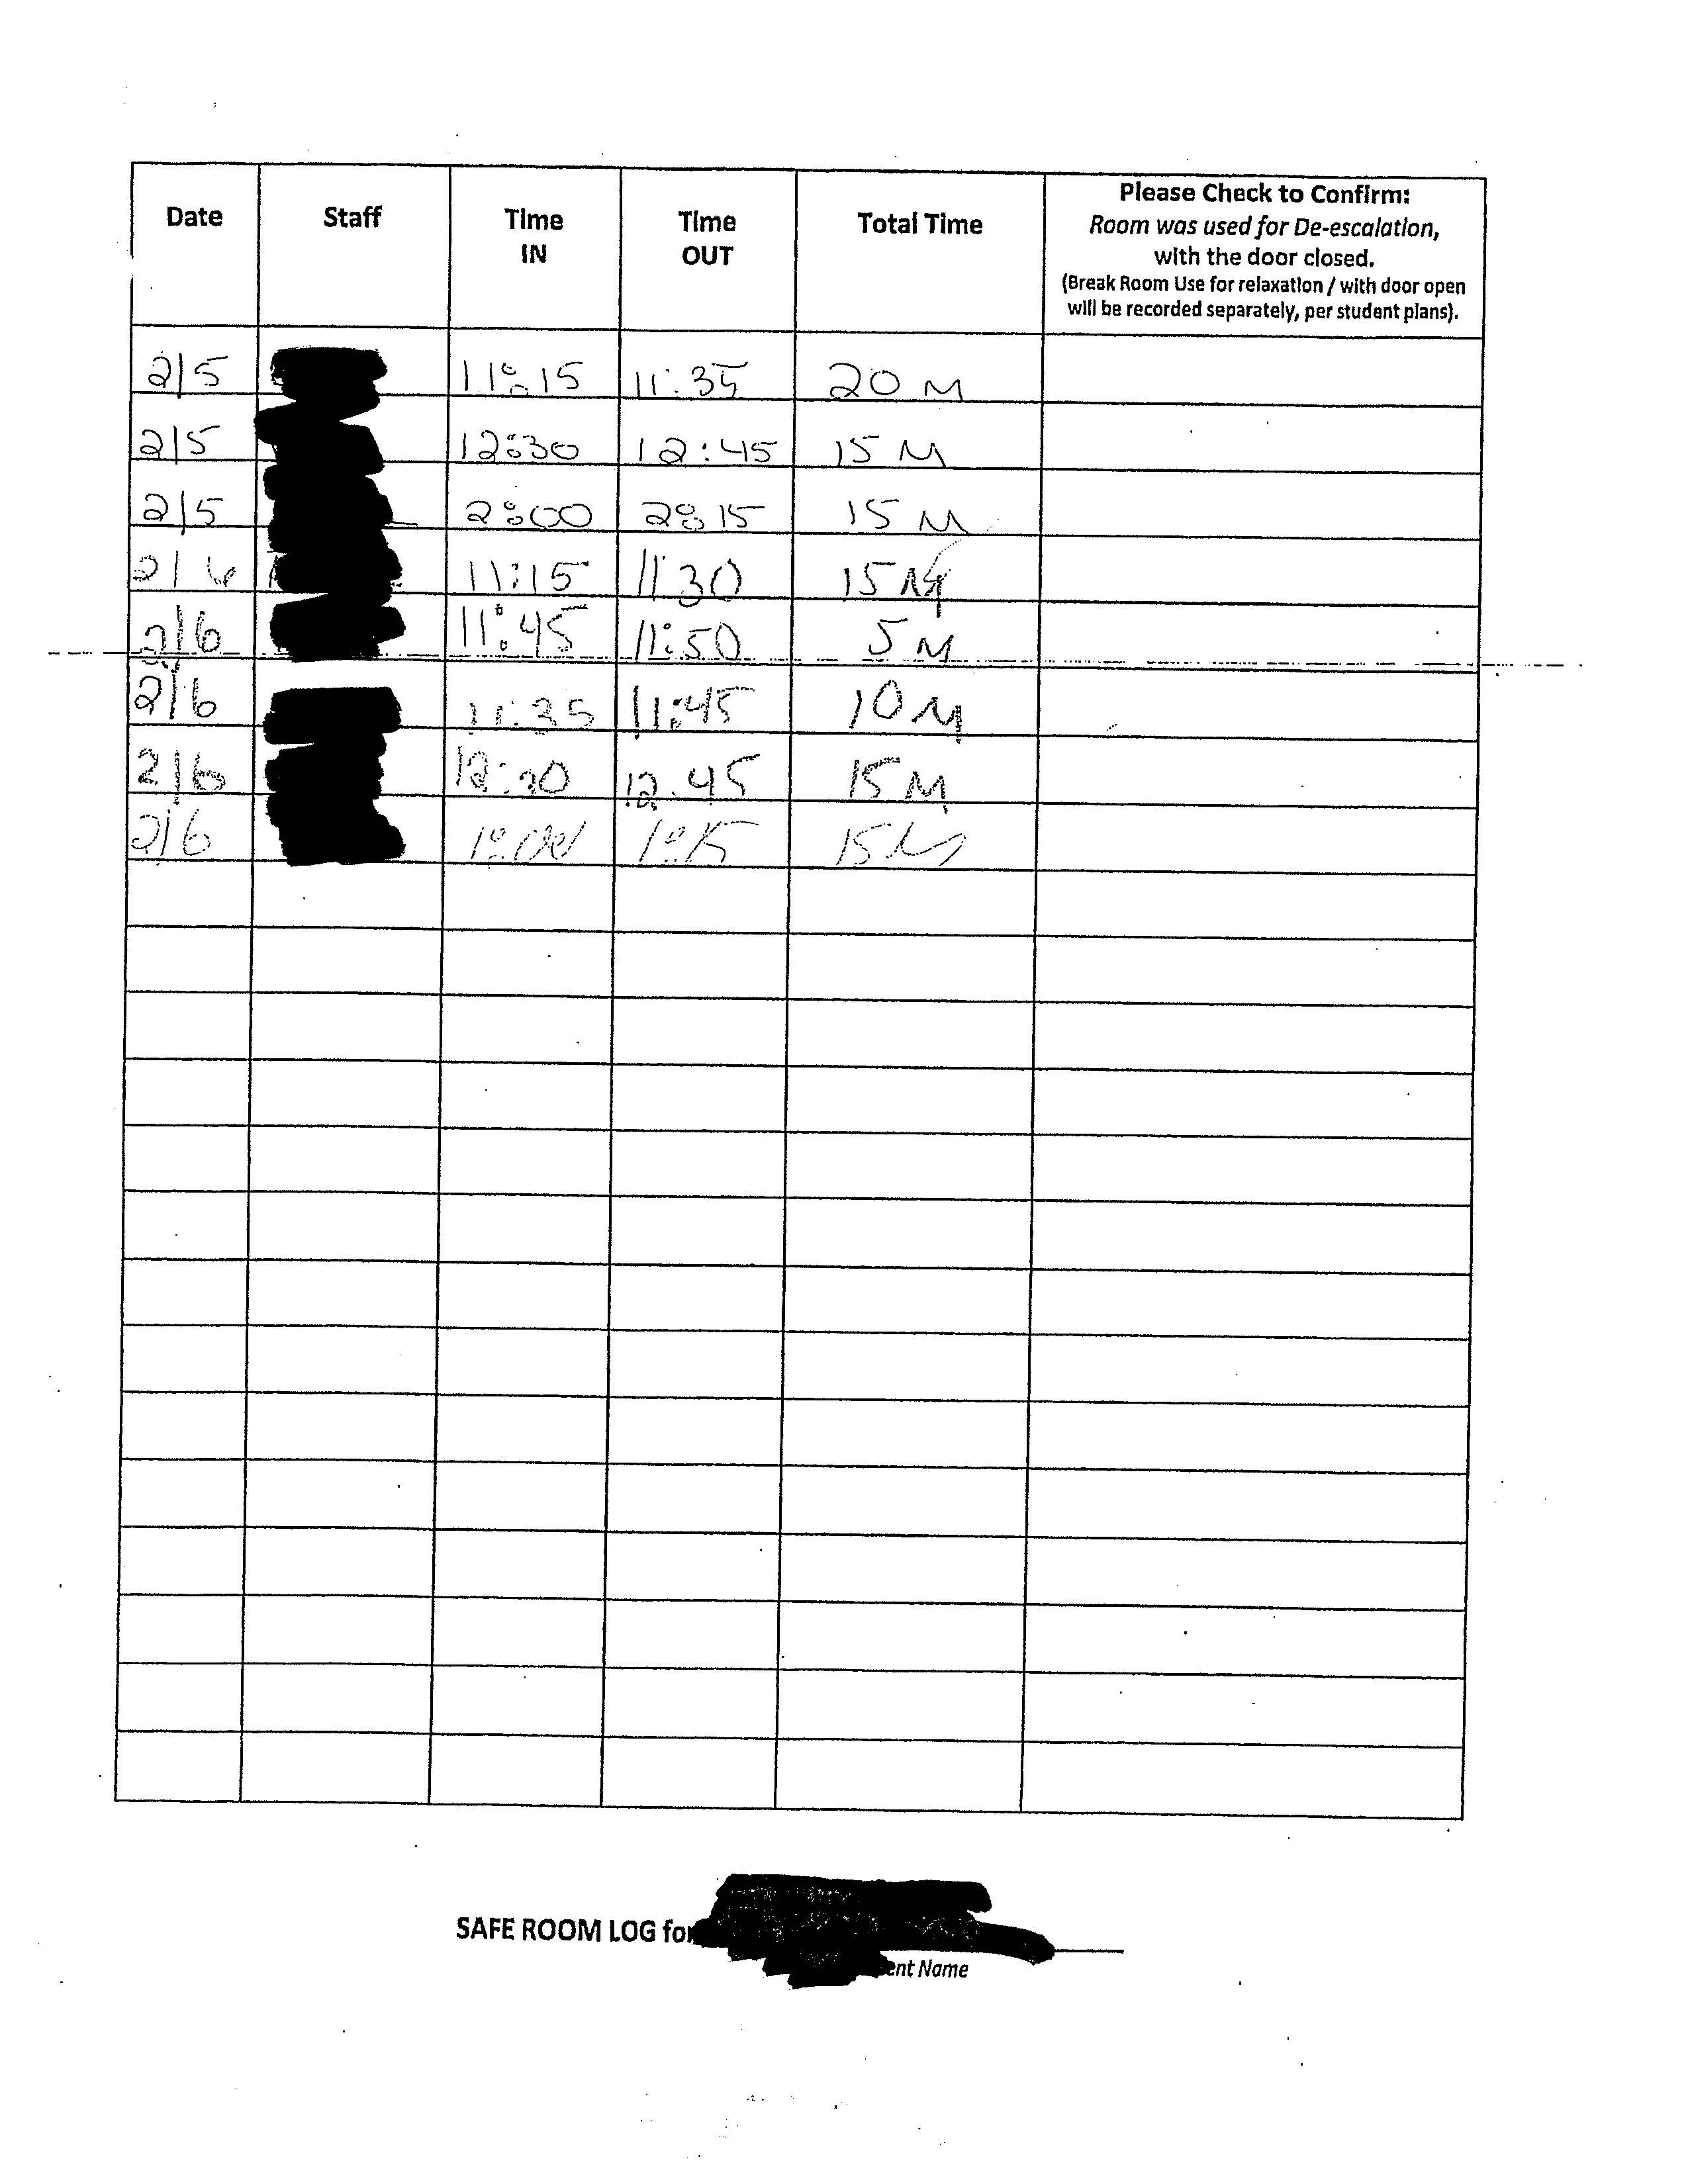 Date Staff Time IN Time OUT Total Time Please Check to Confirm:
Room was used for De-escalation,
with the door closed.
(Break Room Use for relaxation / with door open
will be recorded separately, per student plans).
2/5 11:15 11:35 20 M
2/5 12:30 12:45 15 M
2/5 2:00 2:15 15 M
2/6 11:15 11:30 15 M
2/6 11:45 11:50 5 M
2/6 11:35 11:45 10 M
2/6 12:30 12:45 15 M
2/6 1:00 1:15 15 M
SAFE ROOM LOG for
ent Name